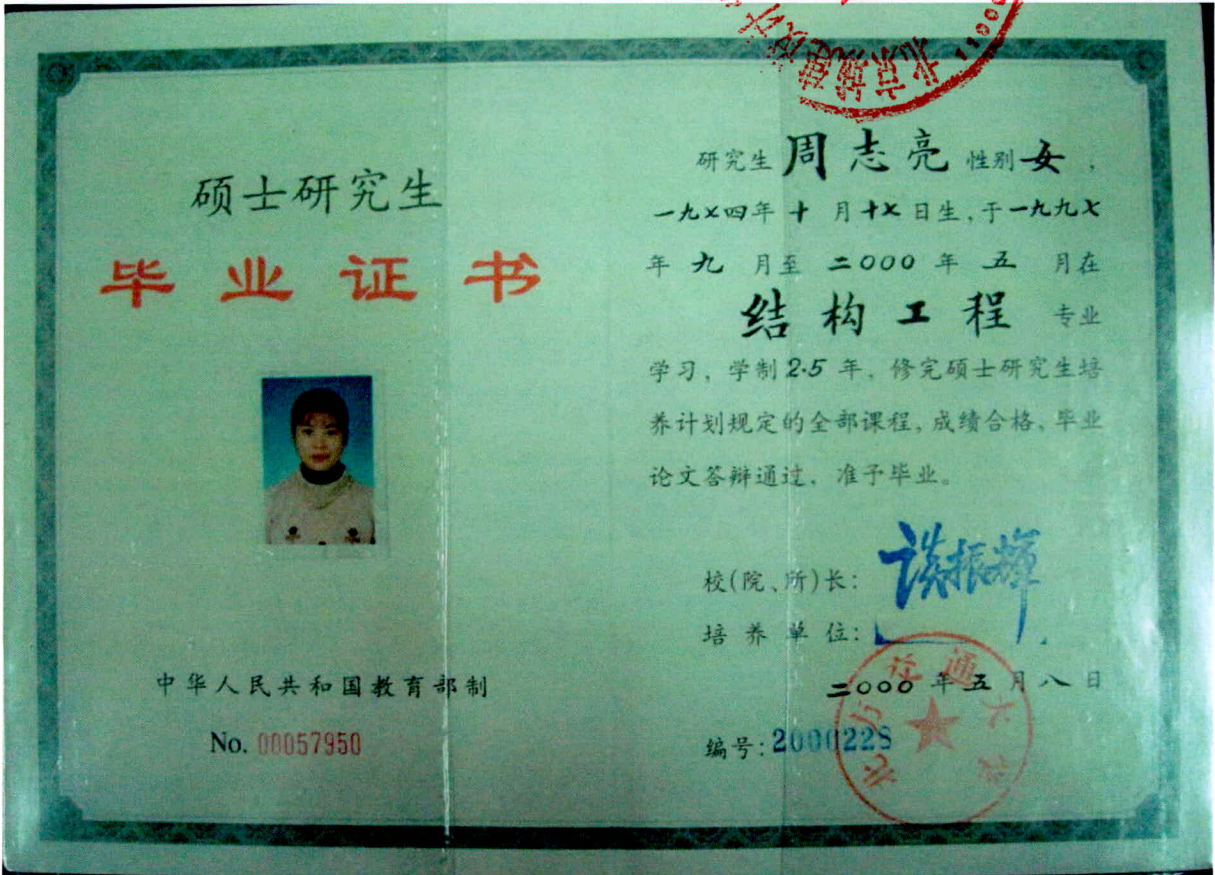 硕士研究生
毕业证书
中华人民共和国教育部制
No. 00057950
研究生 周志亮 性别 女，
一九七四年十月十七日生,于一九九七
年 九 月至 二000 年 五 月在
结构工程 专业
学习，学制 2.5 年，修完硕士研究生培
养计划规定的全部课程，成绩合格、毕业
论文答辩通过，准予毕业。
校(院、所)长: 谈振辉
培养单位:
二000年五月八日
编号: 2000228
北方交通大学
北京城建设计